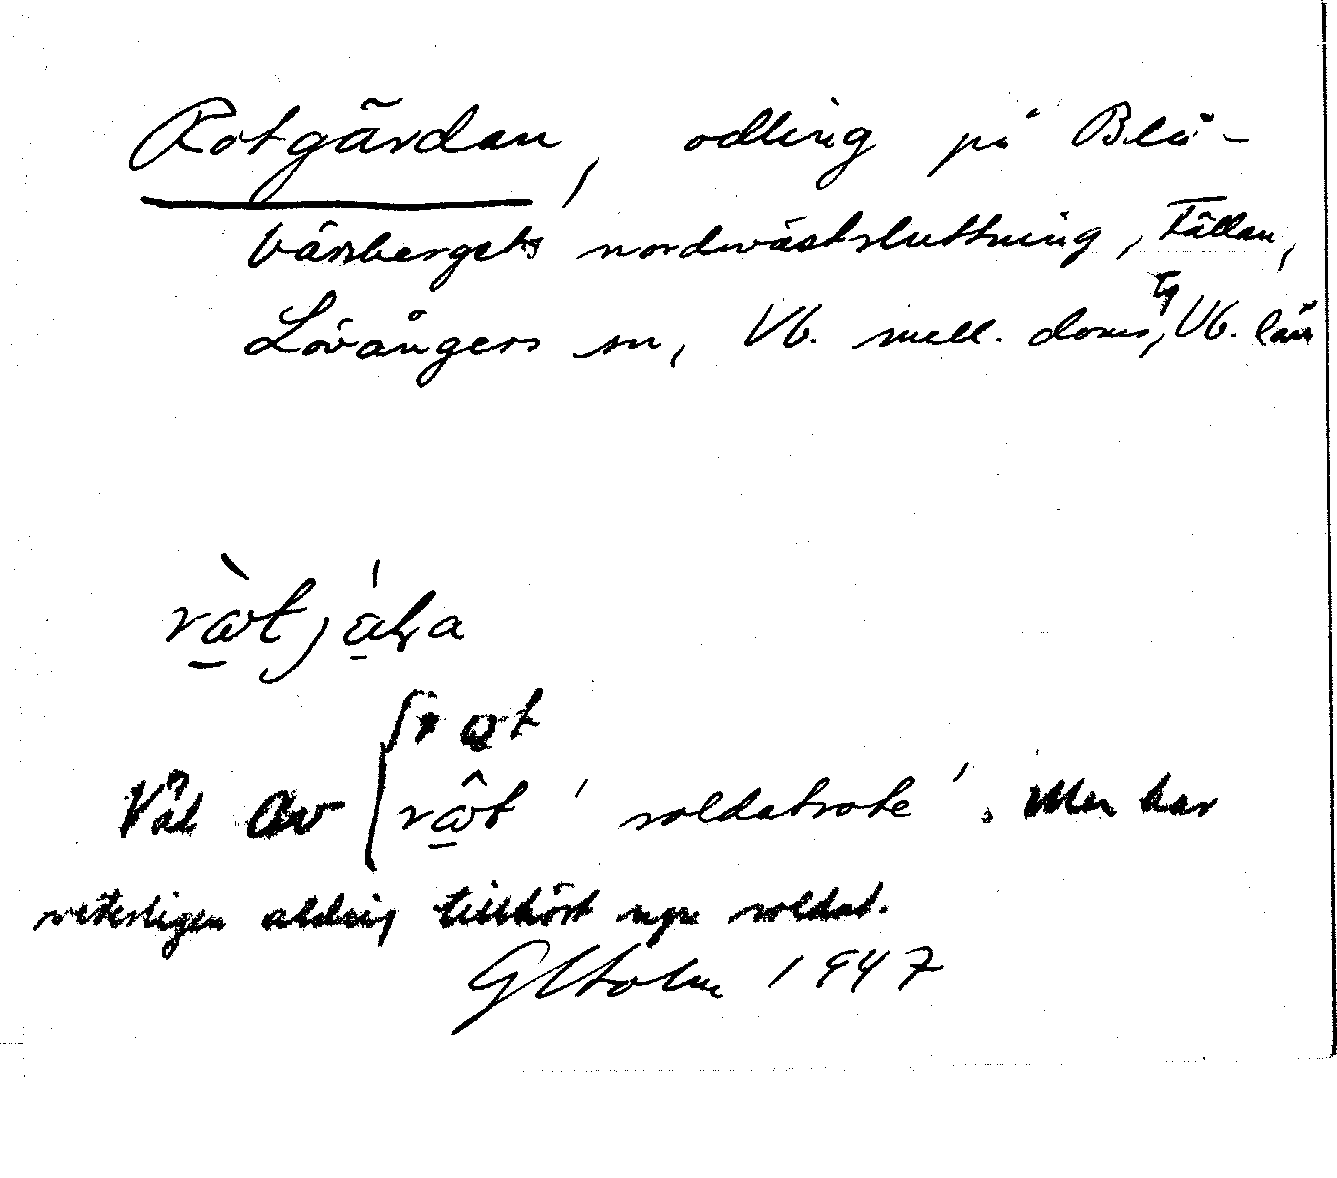 Rotgärdan, odling på Blå-
bärsbergets nordvästsluttning, Fällan,
Lövångers sn, Vb. mell. doms, Vb. län
Väl av
ròt 'soldatrote'. Men har
veterligen aldrig tillhört ngn soldat.
G Holm 1947